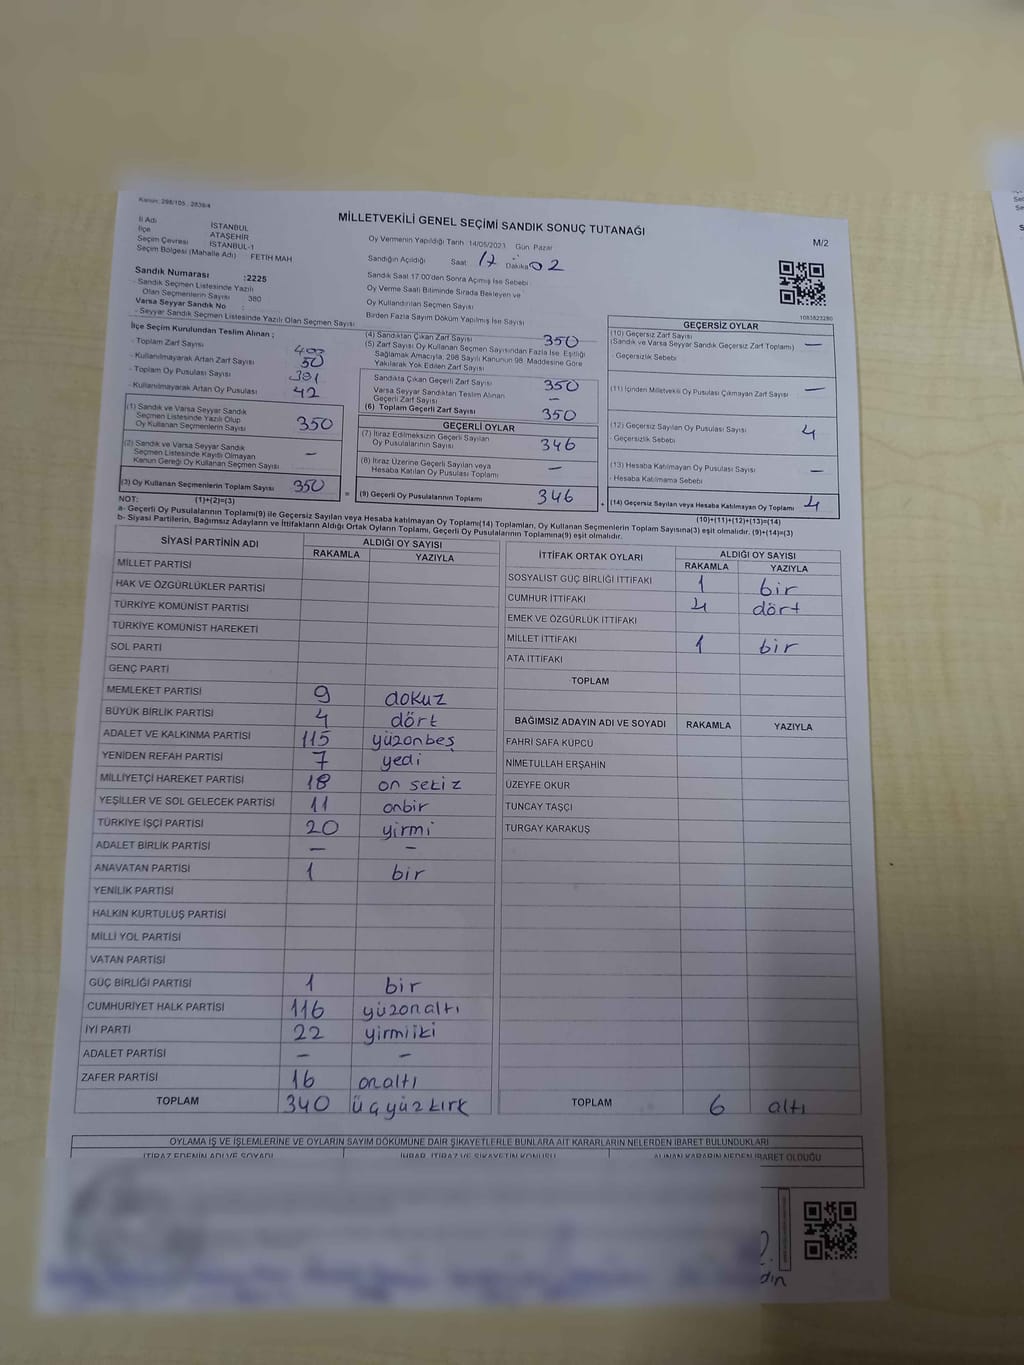 Kanun: 298/105 , 2839/4
MİLLETVEKİLİ GENEL SEÇİMİ SANDIK SONUÇ TUTANAĞI
M/2
İl Adı İSTANBUL
İlçe ATAŞEHİR
Seçim Çevresi İSTANBUL-1
Seçim Bölgesi (Mahalle Adı) FETİH MAH
Oy Vermenin Yapıldığı Tarih 14/05/2023 Gün Pazar
Sandığın Açıldığı Saat 17 Dakika 02
Sandık Numarası :2225
- Sandık Seçmen Listesinde Yazılı
Olan Seçmenlerin Sayısı 380
Varsa Seyyar Sandık No :
- Seyyar Sandık Seçmen Listesinde Yazılı Olan Seçmen Sayısı
Sandık Saat 17:00'den Sonra Açılmış İse Sebebi
Oy Verme Saati Bitiminde Sırada Bekleyen ve
Oy Kullandırılan Seçmen Sayısı
Birden Fazla Sayım Döküm Yapılmış İse Sayısı
1083823280
İlçe Seçim Kurulundan Teslim Alınan ;
- Toplam Zarf Sayısı 403
- Kullanılmayarak Artan Zarf Sayısı 50
- Toplam Oy Pusulası Sayısı 391
- Kullanılmayarak Artan Oy Pusulası 42
(1) Sandık ve Varsa Seyyar Sandık
Seçmen Listesinde Yazılı Olup
Oy Kullanan Seçmenlerin Sayısı 350
(2) Sandık ve Varsa Seyyar Sandık
Seçmen Listesinde Kayıtlı Olmayan
Kanun Gereği Oy Kullanan Seçmen Sayısı –
(3) Oy Kullanan Seçmenlerin Toplam Sayısı 350
(1)+(2)=(3)
(4) Sandıktan Çıkan Zarf Sayısı 350
(5) Zarf Sayısı Oy Kullanan Seçmen Sayısından Fazla İse, Eşitliği
Sağlamak Amacıyla, 298 Sayılı Kanunun 98. Maddesine Göre
Yakılarak Yok Edilen Zarf Sayısı
Sandıkta Çıkan Geçerli Zarf Sayısı 350
Varsa Seyyar Sandıktan Teslim Alınan
Geçerli Zarf Sayısı –
(6) Toplam Geçerli Zarf Sayısı 350
GEÇERLİ OYLAR
(7) İtiraz Edilmeksizin Geçerli Sayılan
Oy Pusulalarının Sayısı 346
(8) İtiraz Üzerine Geçerli Sayılan veya
Hesaba Katılan Oy Pusulası Toplamı –
= (9) Geçerli Oy Pusulalarının Toplamı 346
GEÇERSİZ OYLAR
(10) Geçersiz Zarf Sayısı
(Sandık ve Varsa Seyyar Sandık Geçersiz Zarf Toplamı) –
- Geçersizlik Sebebi
(11) İçinden Milletvekili Oy Pusulası Çıkmayan Zarf Sayısı –
(12) Geçersiz Sayılan Oy Pusulası Sayısı 4
- Geçersizlik Sebebi
(13) Hesaba Katılmayan Oy Pusulası Sayısı –
- Hesaba Katılmama Sebebi
+ (14) Geçersiz Sayılan veya Hesaba Katılmayan Oy Toplamı 4
(10)+(11)+(12)+(13)=(14)
NOT:
a- Geçerli Oy Pusulasının Toplamı(9) ile Geçersiz Sayılan veya Hesaba katılmayan Oy Toplamı(14) Toplamları, Oy Kullanan Seçmenlerin Toplam Sayısına(3) eşit olmalıdır. (9)+(14)=(3)
b- Siyasi Partilerin, Bağımsız Adayların ve İttifakların Aldığı Ortak Oyların Toplamı, Geçerli Oy Pusulalarının Toplamına(9) eşit olmalıdır.
SİYASİ PARTİNİN ADI ALDIĞI OY SAYISI
RAKAMLA YAZIYLA
MİLLET PARTİSİ
HAK VE ÖZGÜRLÜKLER PARTİSİ
TÜRKİYE KOMÜNİST PARTİSİ
TÜRKİYE KOMÜNİST HAREKETİ
SOL PARTİ
GENÇ PARTİ
MEMLEKET PARTİSİ 9 dokuz
BÜYÜK BİRLİK PARTİSİ 4 dört
ADALET VE KALKINMA PARTİSİ 115 yüzonbeş
YENİDEN REFAH PARTİSİ 7 yedi
MİLLİYETÇİ HAREKET PARTİSİ 18 on sekiz
YEŞİLLER VE SOL GELECEK PARTİSİ 11 onbir
TÜRKİYE İŞÇİ PARTİSİ 20 yirmi
ADALET BİRLİK PARTİSİ – –
ANAVATAN PARTİSİ 1 bir
YENİLİK PARTİSİ
HALKIN KURTULUŞ PARTİSİ
MİLLİ YOL PARTİSİ
VATAN PARTİSİ
GÜÇ BİRLİĞİ PARTİSİ 1 bir
CUMHURİYET HALK PARTİSİ 116 yüzonaltı
İYİ PARTİ 22 yirmiiki
ADALET PARTİSİ – –
ZAFER PARTİSİ 16 onaltı
TOPLAM 340 üçyüzkırk
İTTİFAK ORTAK OYLARI ALDIĞI OY SAYISI
RAKAMLA YAZIYLA
SOSYALİST GÜÇ BİRLİĞİ İTTİFAKI 1 bir
CUMHUR İTTİFAKI 4 dört
EMEK VE ÖZGÜRLÜK İTTİFAKI
MİLLET İTTİFAKI 1 bir
ATA İTTİFAKI
TOPLAM
BAĞIMSIZ ADAYIN ADI VE SOYADI RAKAMLA YAZIYLA
FAHRİ SAFA KÜPCÜ
NİMETULLAH ERŞAHİN
ÜZEYFE OKUR
TUNCAY TAŞÇI
TURGAY KARAKUŞ
TOPLAM 6 altı
OYLAMA İŞ VE İŞLEMLERİNE VE OYLARIN SAYIM DÖKÜMÜNE DAİR ŞİKAYETLERLE BUNLARA AİT KARARLARIN NELERDEN İBARET BULUNDUKLARI
İTİRAZ EDENİN ADI VE SOYADI İHBAR, İTİRAZ VE ŞİKAYETİN KONUSU ALINAN KARARIN NEDEN İBARET OLDUĞU